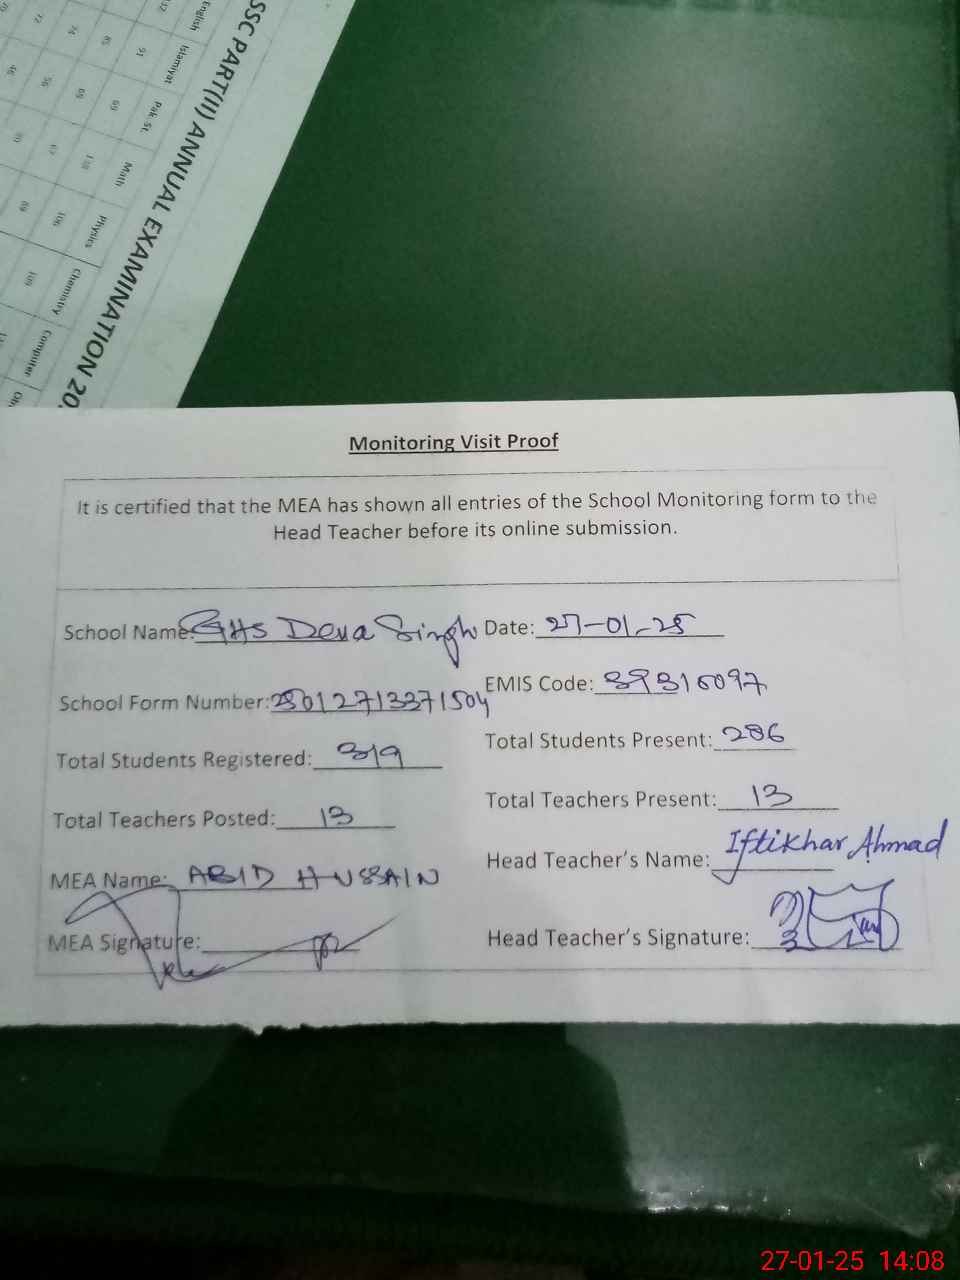 SSC PART(II) ANNUAL EXAMINATION 20
English Islamiyat Pak. St. Math Physics Chemistry Computer
Monitoring Visit Proof
It is certified that the MEA has shown all entries of the School Monitoring form to the
Head Teacher before its online submission.
School Name: GHS Deva Singh Date: 27-01-25
School Form Number: EMIS Code:
Total Students Registered: 319 Total Students Present: 286
Total Teachers Posted: 13 Total Teachers Present: 13
MEA Name: ABID HUSSAIN Head Teacher's Name: Iftikhar Ahmad
MEA Signature: Head Teacher's Signature:
27-01-25 14:08